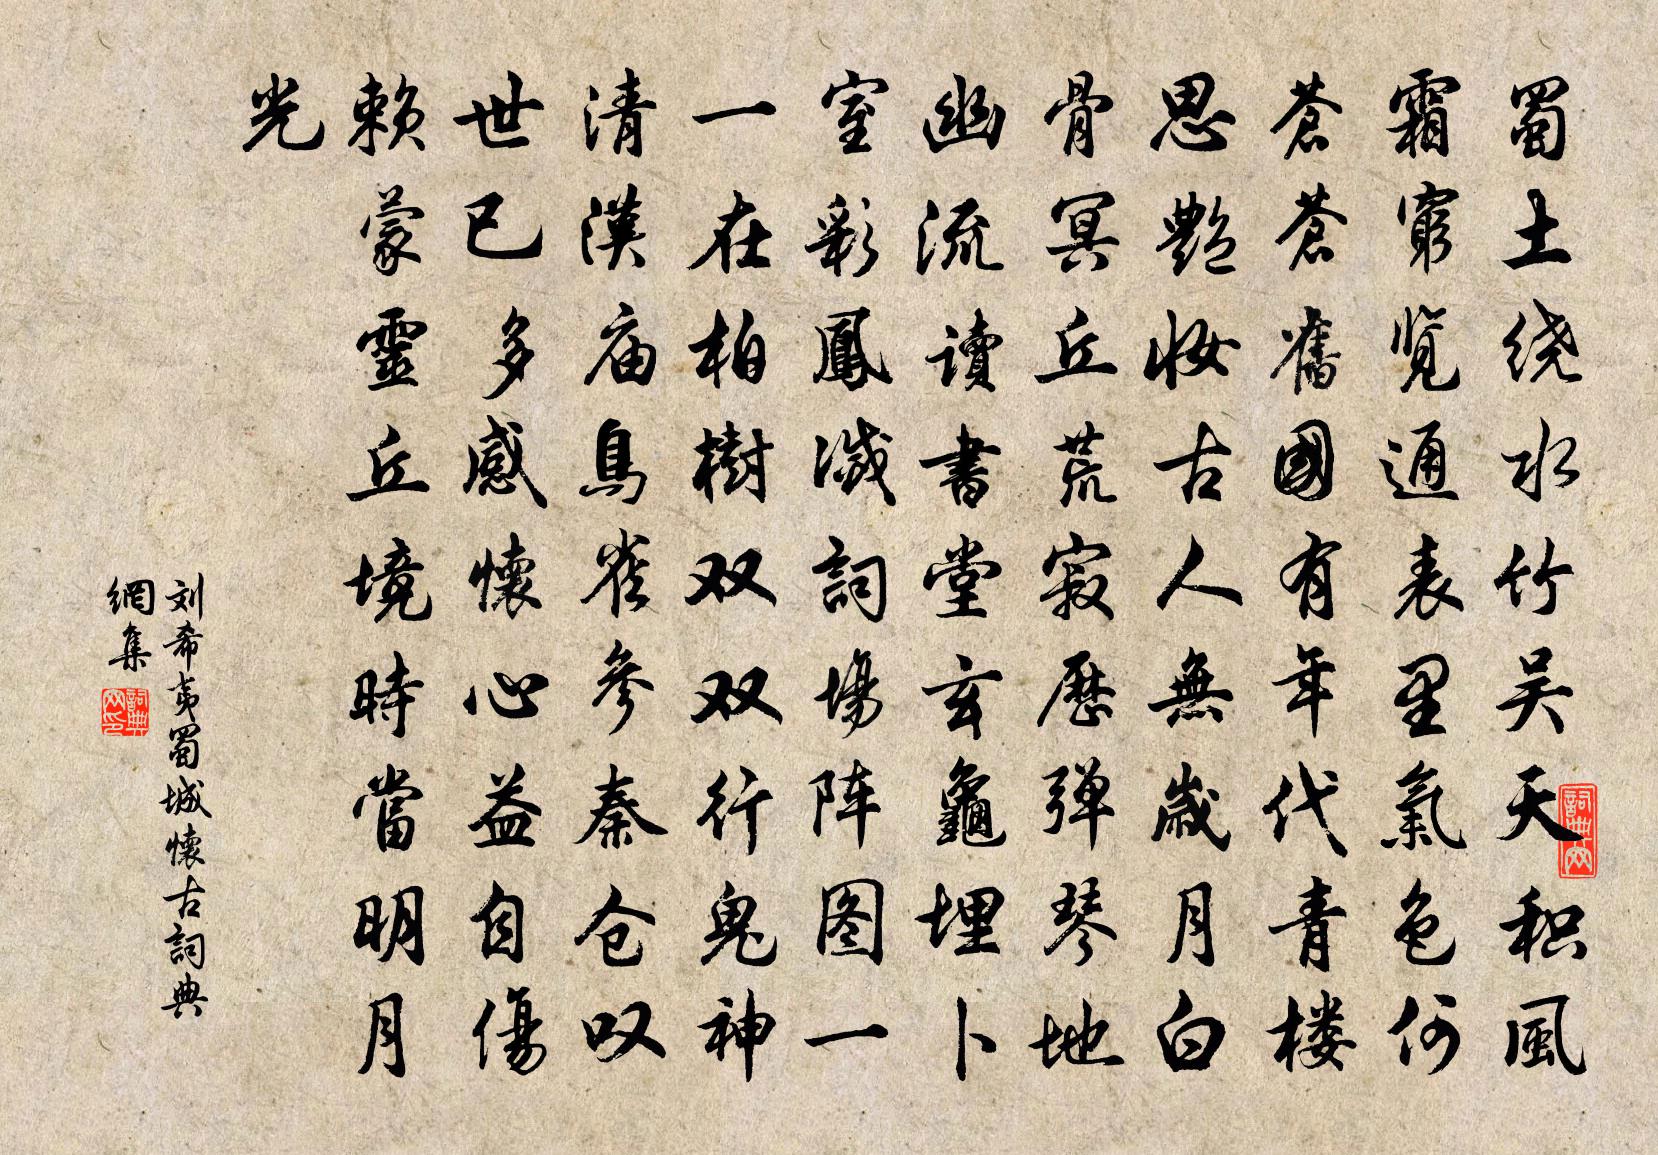 詞典网
蜀土绕水竹吴天积風
霜窮览通表里氣色何
蒼蒼舊國有年代青楼
思艷妆古人無歲月白
骨冥丘荒寂歷弹琴地
幽流讀書堂玄龜埋卜
室彩鳳滅詞場阵图一
一在柏樹双双行鬼神
清漢庙鳥雀参秦仓叹
世已多感懷心益自傷
賴蒙靈丘境時當明月
光
刘希夷蜀城懷古詞典
網集
詞典
网印